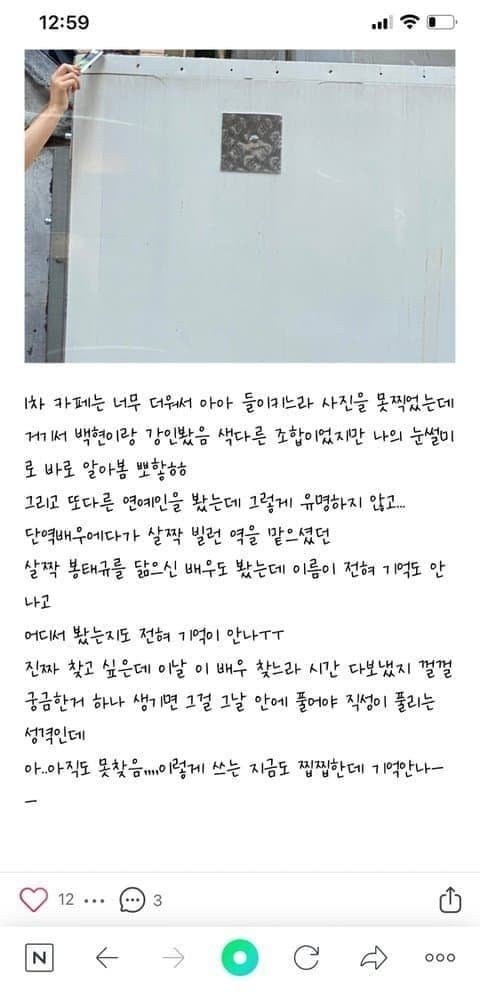 12:59
1차 카페는 너무 더워서 아아 들이키느라 사진을 못찍었는데
거기서 백현이랑 강인봤음 색다른 조합이었지만 나의 눈썰미
로 바로 알아봄 뽀핳ㅎㅎ
그리고 또다른 연예인을 봤는데 그렇게 유명하지 않고...
단역배우에다가 살짝 빌런 역을 맡으셨던
살짝 봉태규를 닮으신 배우도 봤는데 이름이 전혀 기억도 안
나고
어디서 봤는지도 전혀 기억이 안나ㅜㅜ
진짜 찾고 싶은데 이날 이 배우 찾느라 시간 다보냈지 껄껄
궁금한거 하나 생기면 그걸 그날 안에 풀어야 직성이 풀리는
성격인데
아..아직도 못찾음,,,,이렇게 쓰는 지금도 찝찝한데 기억안나ㅡ
ㅡ
12 ... 3
N